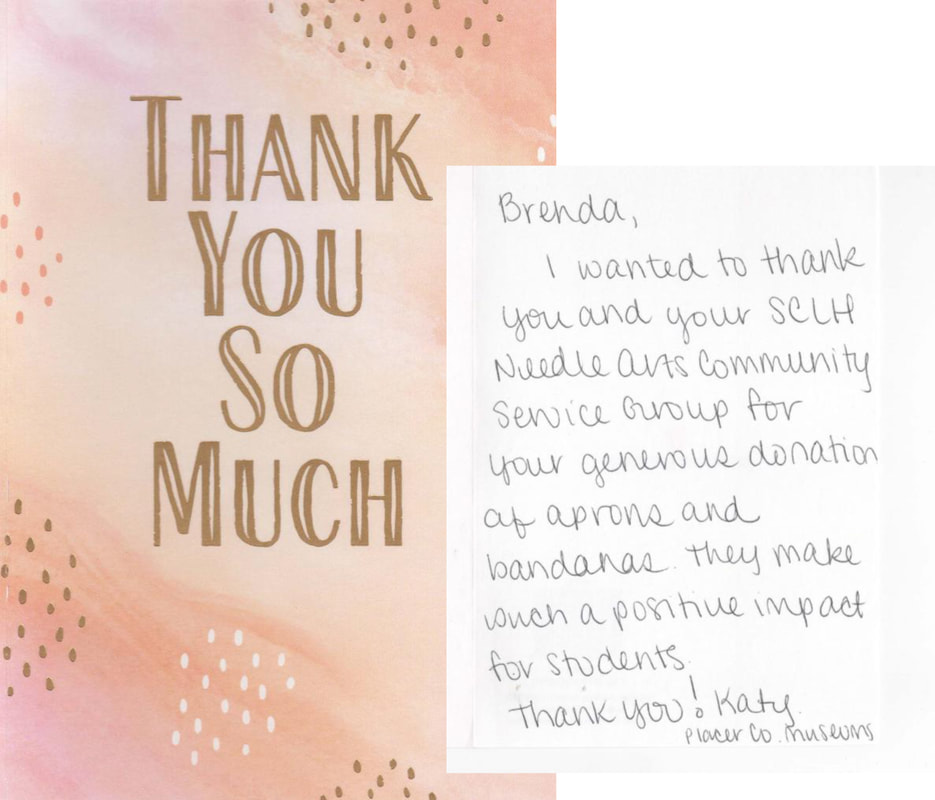 THANK
YOU
SO
MUCH
Brenda,
I wanted to thank
you and your SCLH
Needle Arts Community
Service Group for
your generous donation
of aprons and
bandanas. They make
such a positive impact
for students.
Thank you! Katy
Placer Co. Museums